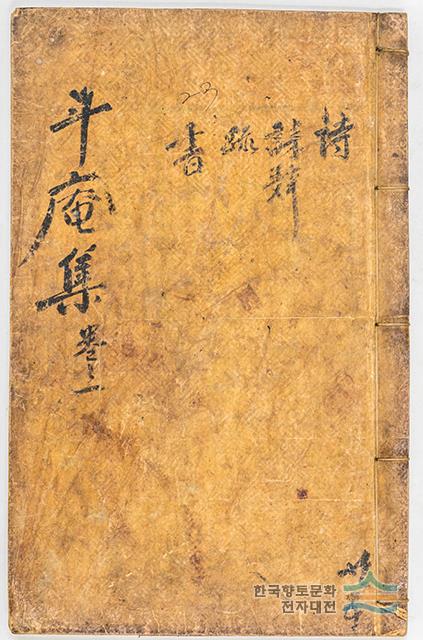 詩
疏
書
斗庵集 卷之一
한국향토문화
전자대전